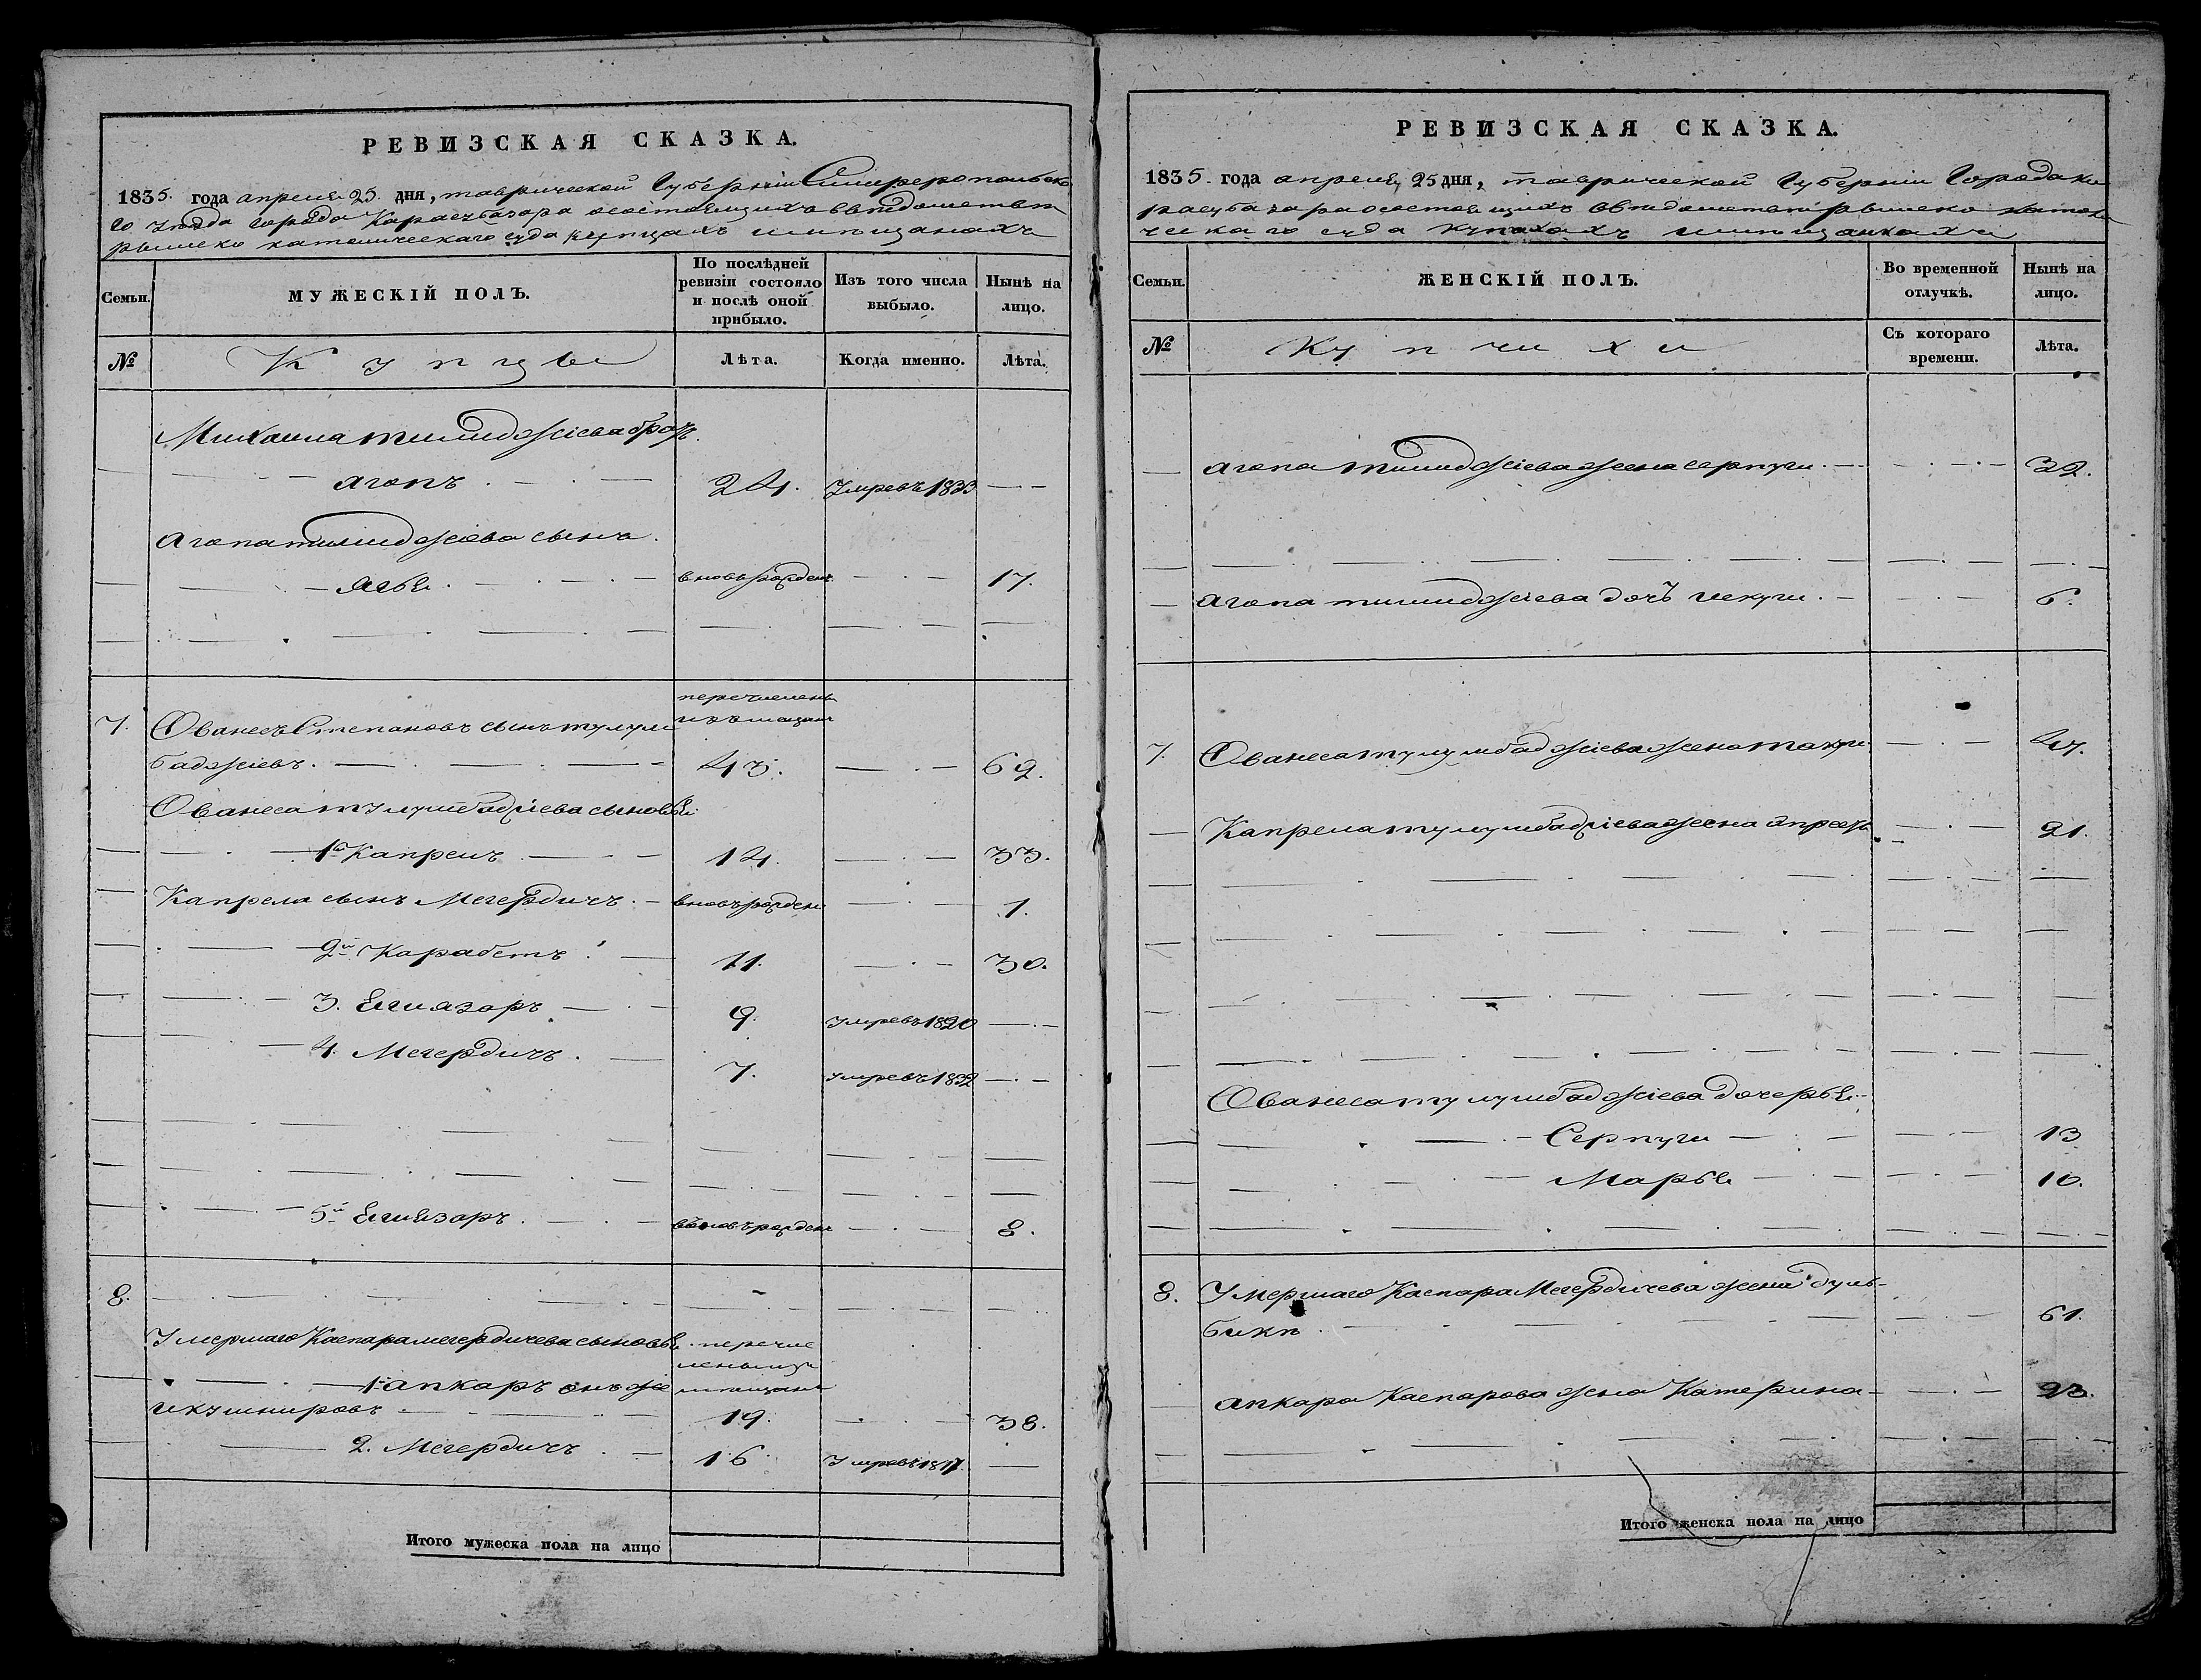 РЕВИЗСКАЯ СКАЗКА.
1835. года апреля 25. дня, таврической Губерніи Симферопольска
го уезда Города Карасубазара осостоящихъ введомстве
римско католическаго суда купцахъ имещанахъ
Семьи.
МУЖЕСКІЙ ПОЛЪ.
По послѣдней ревизіи состояло и послѣ оной прибыло.
Изъ того числа выбыло.
Нынѣ на лицо.
№
Купцы
Лѣта.
Когда именно.
Лѣта.
Михаила братъ
агопъ 24. Умревъ 1833
агопа сынъ
вновьрожденъ 17.
перечисленъ
измещанъ
7. Ованесъ Степановъ сынъ тулум
баджіевъ. 43. 62.
Ованеса тулумбаджіева сыновья
1й Капрелъ 14. 33.
Капрела сынъ Мегердичъ. вновьрожденъ 1.
2й Карабетъ 11. 30.
3. Егиазаръ 9. умревъ 1820
4. Мегердичъ. 7. умревъ 1832
5й Егиязаръ. вновьрожденъ 8.
8.
Умершаго Каспара мегердичева сыновья перечис
лены из
1й апкаръ онъ же мещанъ
19. 38.
2. Мегердичъ 16 Умревъ 1817.
Итого мужеска пола на лицо
РЕВИЗСКАЯ СКАЗКА.
1835. года апреля 25 дня, таврической Губерніи Города Ка
расубазара осостоящихъ введомстве римско католи
ческаго суда имещанкахъ
Семьи.
ЖЕНСКІЙ ПОЛЪ.
Во временной отлучкѣ.
Нынѣ на лицо.
№
Купчихи
Съ котораго времени.
Лѣта.
агопа жена серпуги. 32.
агопа дочь 6.
7. Ованеса тулумбаджіева жена 47.
Капрела тулумбаджіева жена 21.
Ованеса тулумбаджіева дочерья
Серпуги 13
Марья 10.
8. Умершаго Каспара Мегердичева жена дуль-
бики. 61.
апкара Каспарова жена Катерина 23.
Итого женска пола на лицо